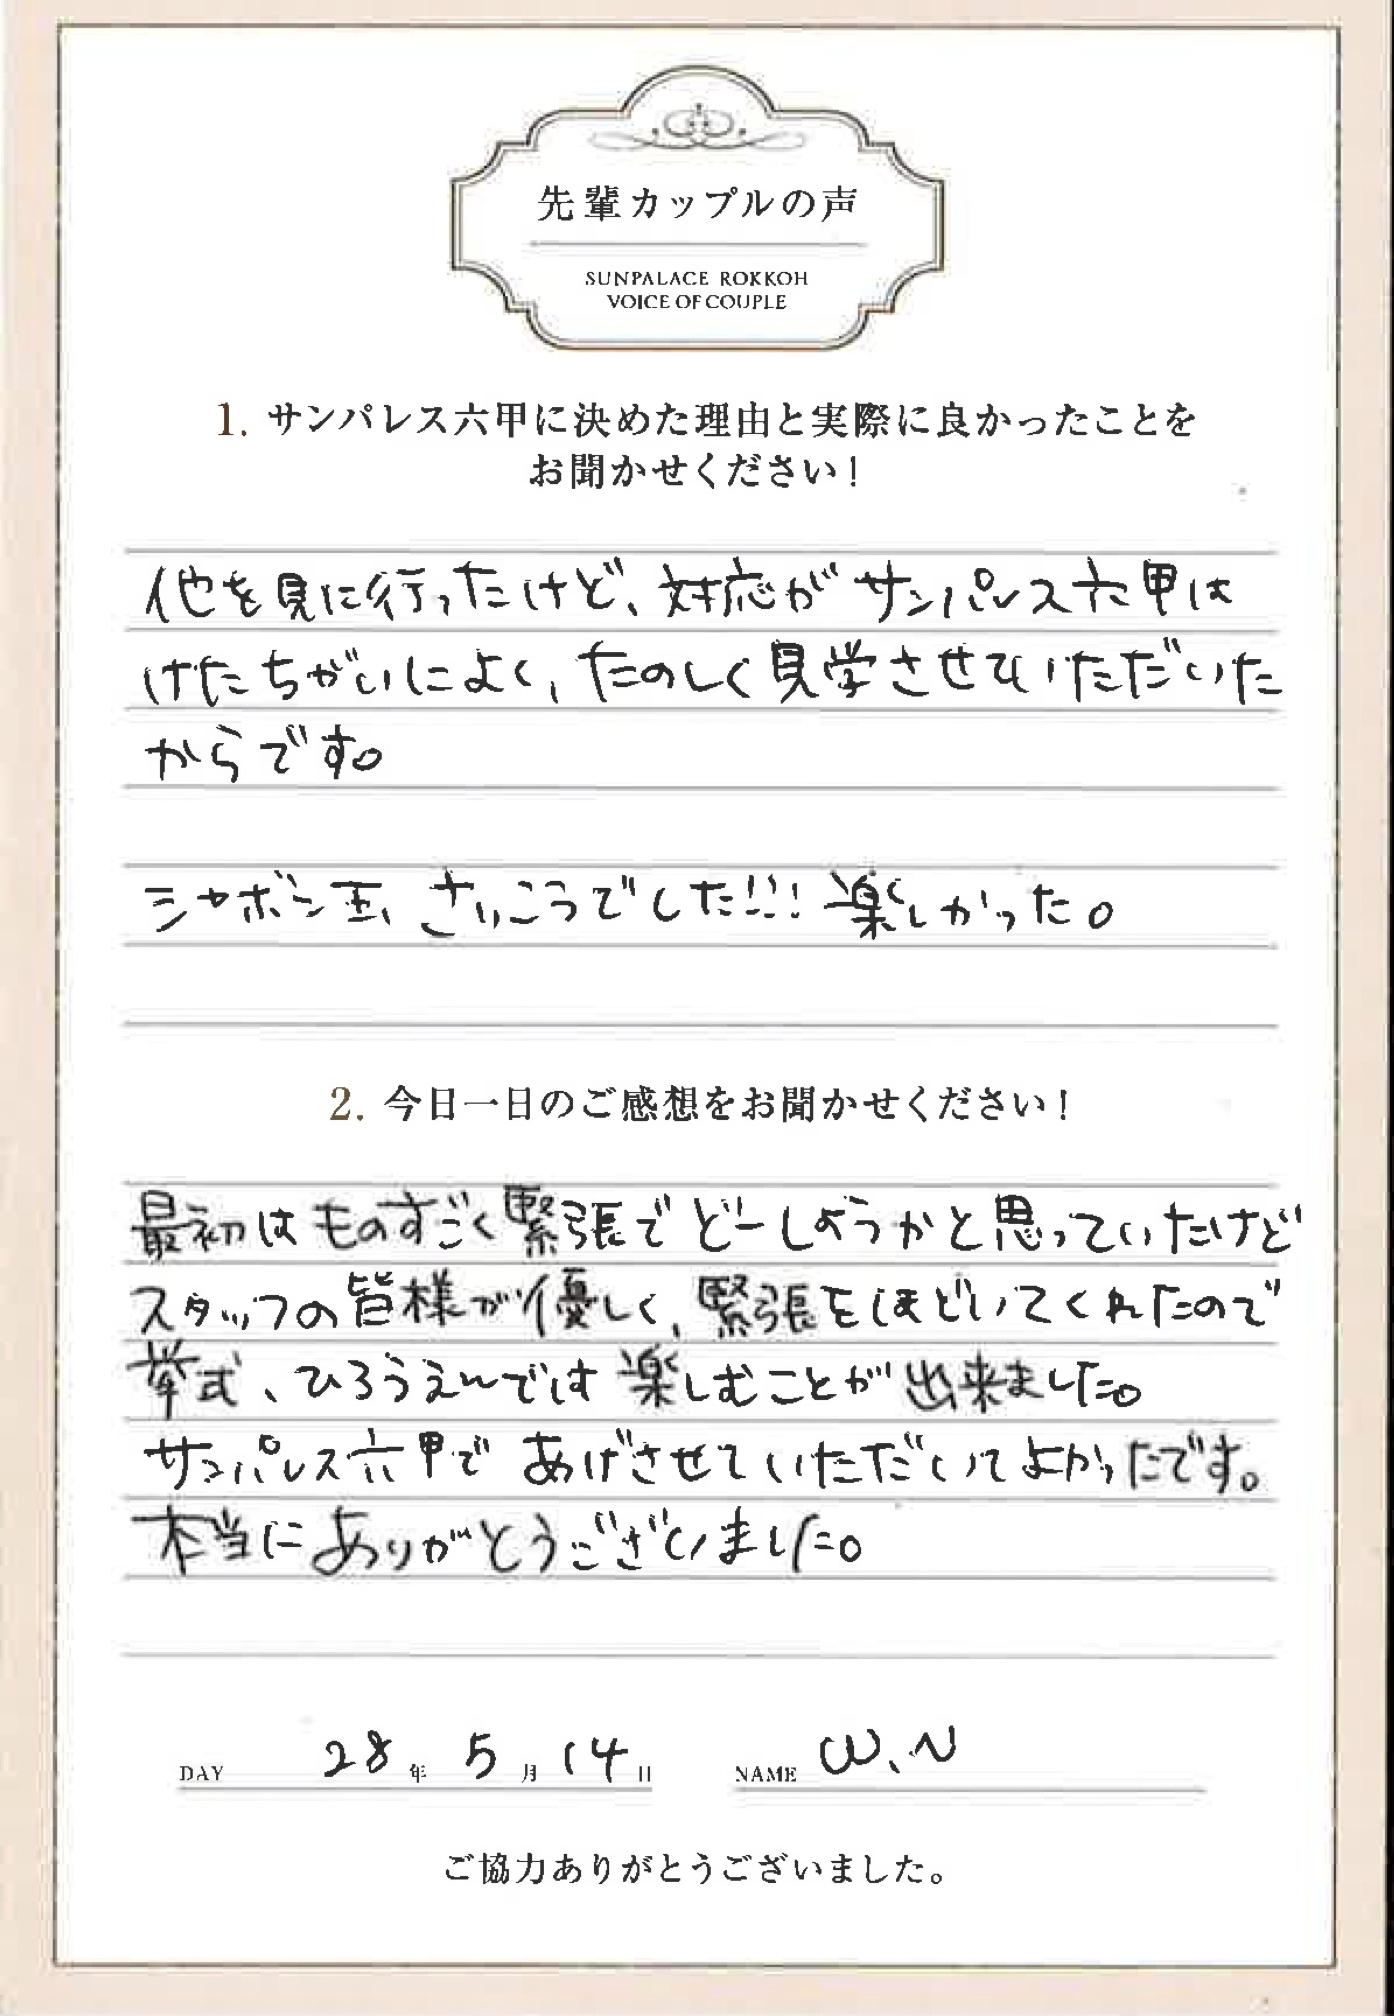 先輩カップルの声
SUNPALACE ROKKOH
VOICE OF COUPLE
1. サンパレス六甲に決めた理由と実際に良かったことを
お聞かせください!
他を見に行ったけど、対応がサンパレス六甲は
けたちがいによく、たのしく見学させていただいた
からです。
シャボン玉、さいこうでした!!! 楽しかった。
2. 今日一日のご感想をお聞かせください!
最初はものすごく緊張でどーしようかと思っていたけど
スタッフの皆様が優しく、緊張をほどいてくれたので
挙式、ひろうえんでは楽しむことが出来ました。
サンパレス六甲であげさせていただいてよかったです。
本当にありがとうございました。
DAY 28年 5月 14日 NAME W.N
ご協力ありがとうございました。